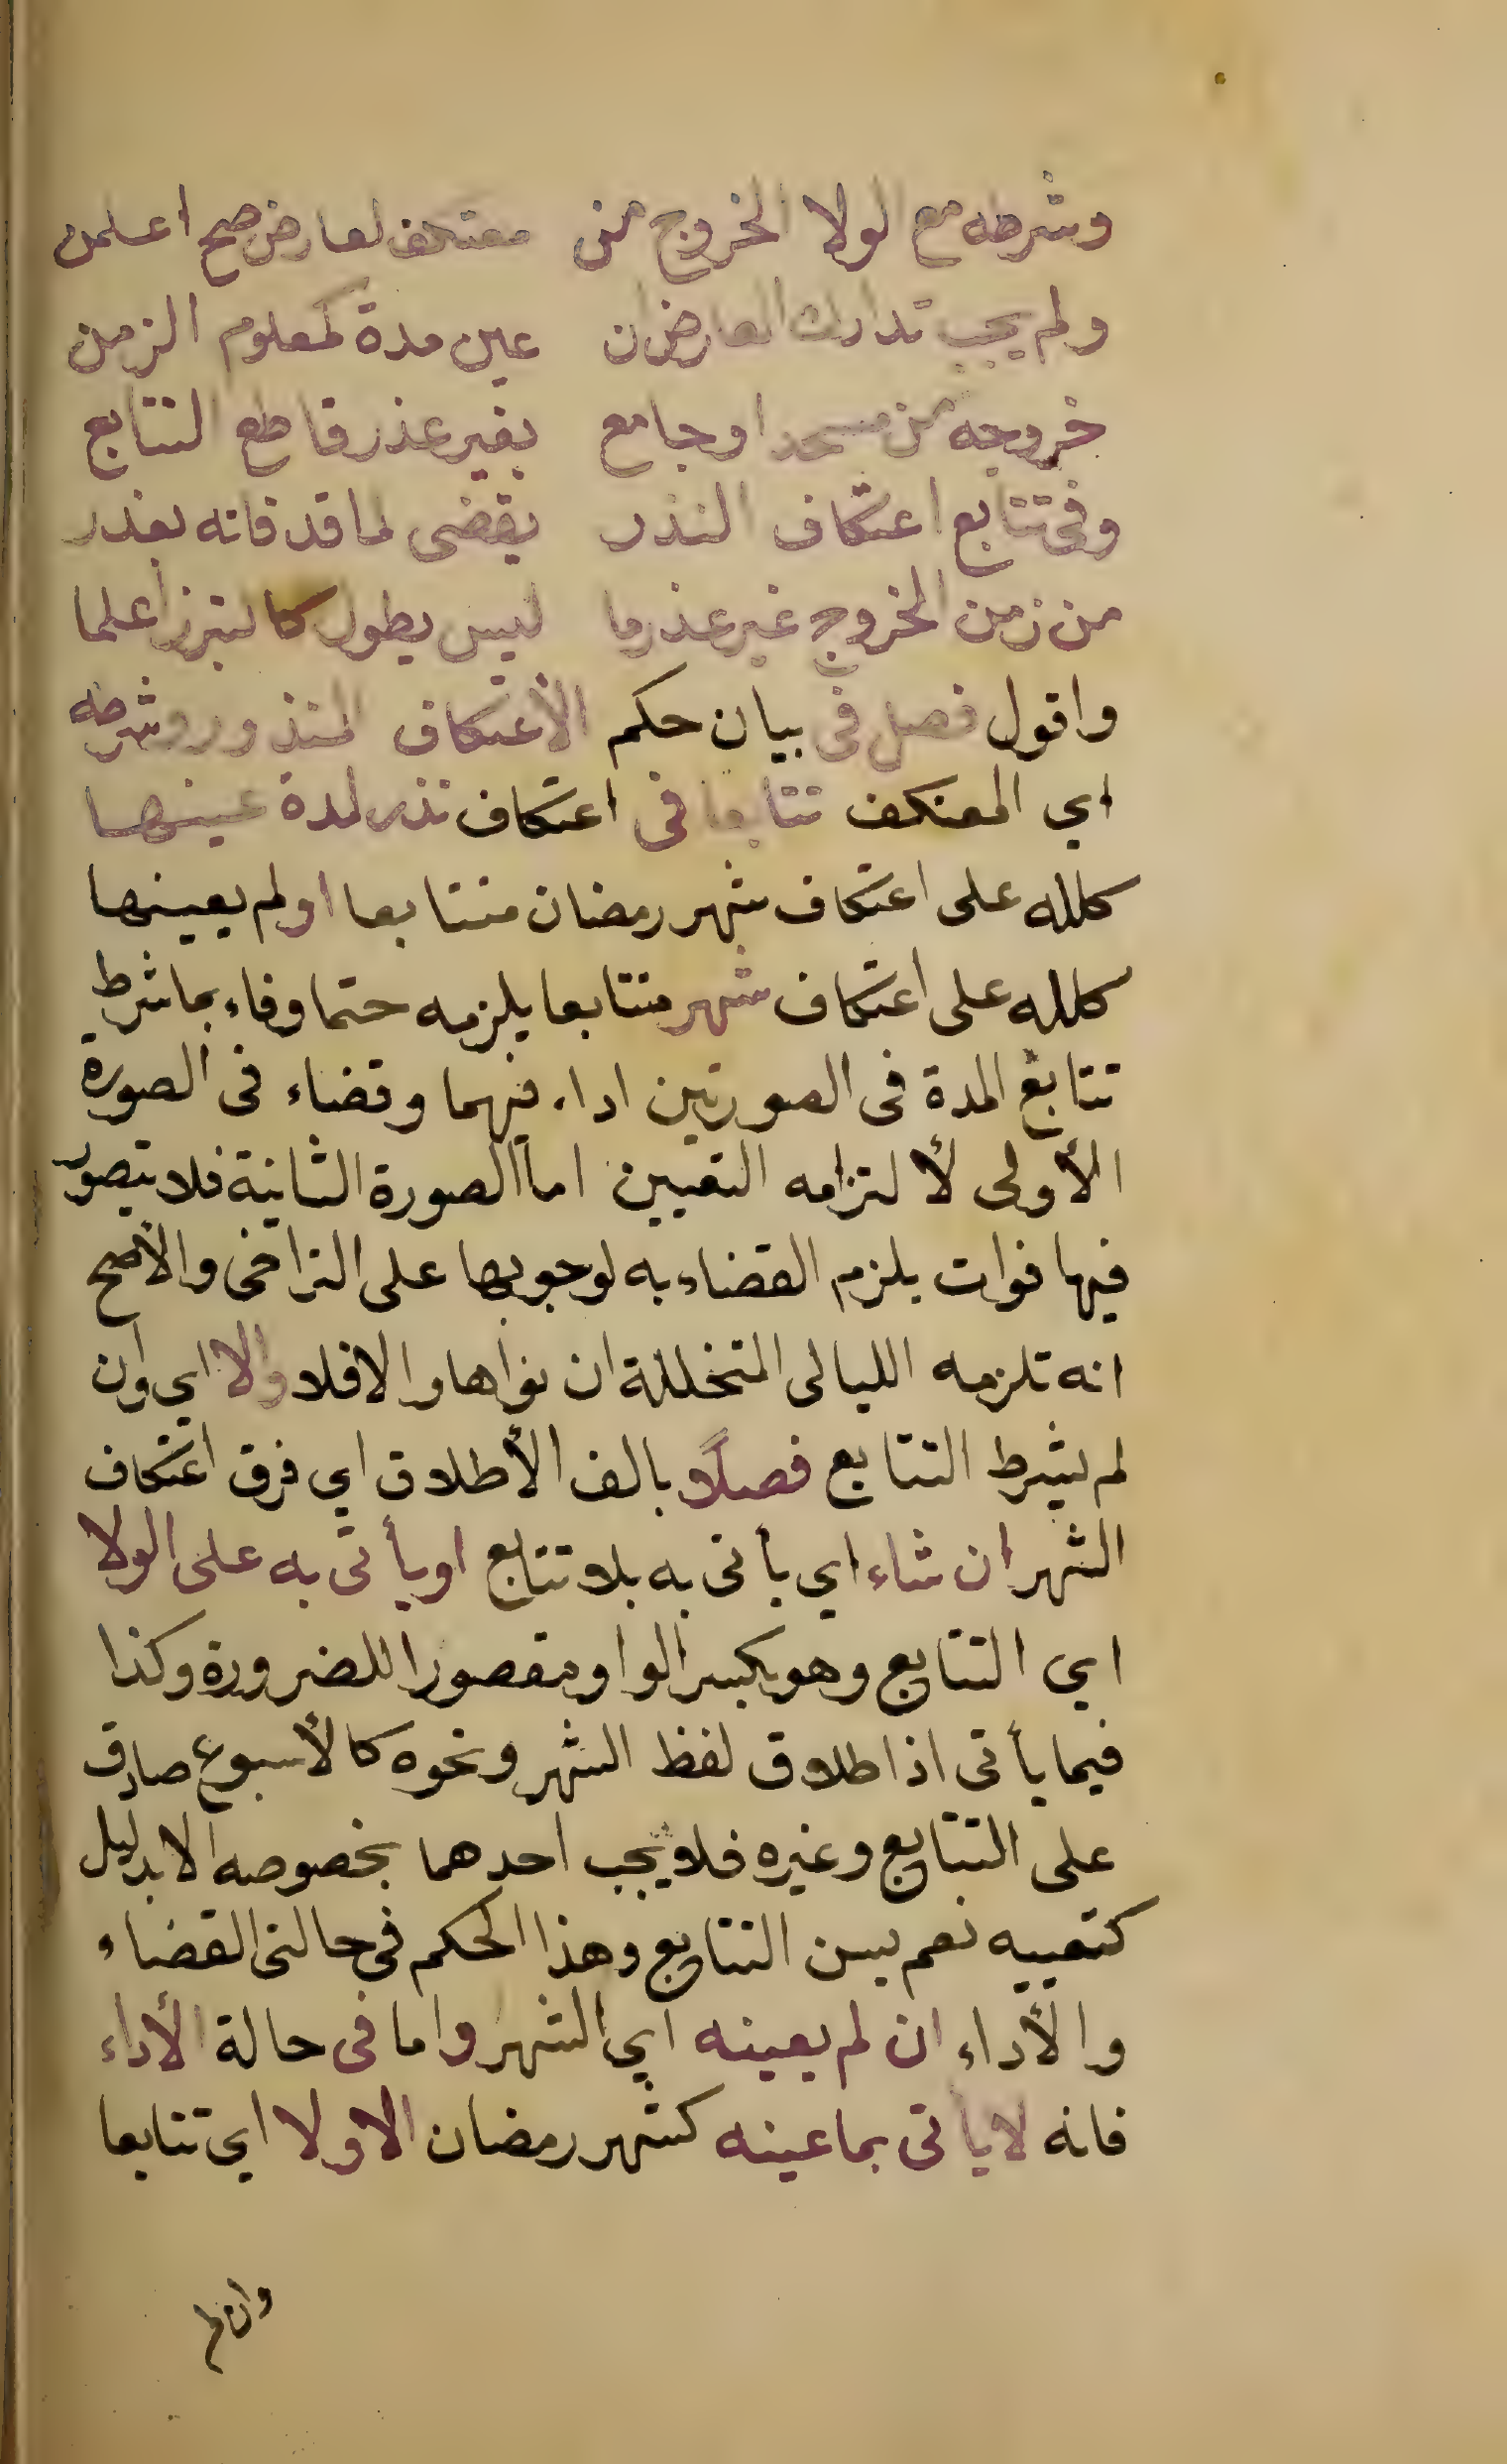 وشرطه مع الولا الخروج من معتكف لعارض صح اعلمن
ولم يجب تدارك العارض ان عين مدة كمعلوم الزمن
خروجه من مسجد او جامع بغير عذر قاطع التتابع
وفي تتابع اعتكاف النذر يقضى لما قد فاته بعذر
من زمن الخروج غير عذر ما ليس يطول كالتبرز اعلما
واقول فصل في بيان حكم الأعتكاف المنذور وشرطه
اي المعتكف تتابعا في اعتكاف نذر لمدة عينها
كلله على اعتكاف شهر رمضان متتابعا او لم يعينها
كلله على اعتكاف شهر متتابعا يلزمه حتما وفاء بما شرط
تتابع المدة فى الصورتين اداء فيهما وقضاء فى الصورة
الأولى لألتزامه التعيين اما الصورة الثانية فلا يتصور
فيها فوات يلزم القضاء به لوجوبها على التراخى والأصح
انه تلزمه الليالى المتخللة ان نواها والا فلا والا اي وان
لم يشرط التتابع فصلًا بالف الأطلاق اي فرق اعتكاف
الشهر ان شاء اي يأتى به بلا تتابع او يأتى به على الولا
اي التتابع وهو بكسر الواو مقصورا للضرورة وكذا
فيما يأتى اذ اطلاق لفظ الشهر ونحوه كالأسبوع صادق
على التتابع وغيره فلا يجب احدهما بخصوصه الا بدليل
كتعييه نعم يسن التتابع وهذا الحكم فى حالتى القضاء
والأداء ان لم يعينه اي الشهر واما فى حالة الأداء
فانه لا يأتى بما عينه كشهر رمضان الا ولا اي تتابعا
وان لم